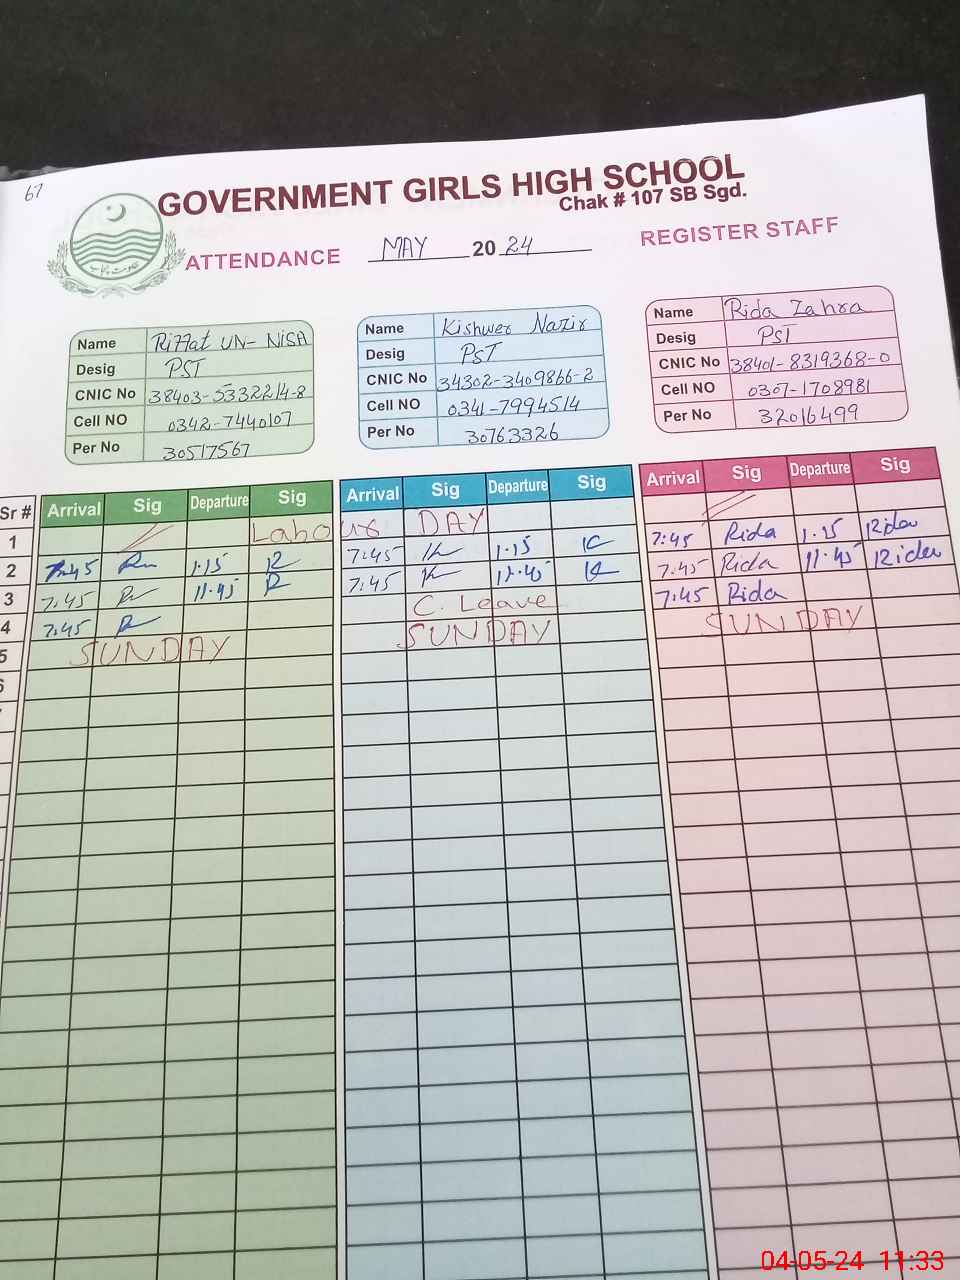 67
GOVERNMENT GIRLS HIGH SCHOOL
Chak # 107 SB Sgd.
ATTENDANCE MAY 2024 REGISTER STAFF
حکومت پنجاب
Name Riffat UN-NISA
Desig PST
CNIC No 38403-5332214-8
Cell NO 0342-7440107
Per No 30517567
Name Kishwer Nazir
Desig PST
CNIC No 34302-3409866-2
Cell NO 0341-7994514
Per No 30763326
Name Rida Zahra
Desig PST
CNIC No 38401-8319368-0
Cell NO 0307-1708981
Per No 32016499
Sr # Arrival Sig Departure Sig Arrival Sig Departure Sig Arrival Sig Departure Sig
1 Labour DAY
2 7:45 1.15 7:45 1.15 7:45 Rida 1.15 Rida
3 7:45 11.45 7:45 11.45 7:45 Rida 11.45 Rida
4 7:45 C. Leave 7:45 Rida
5 SUNDAY SUNDAY SUNDAY
6
04-05-24 11:33